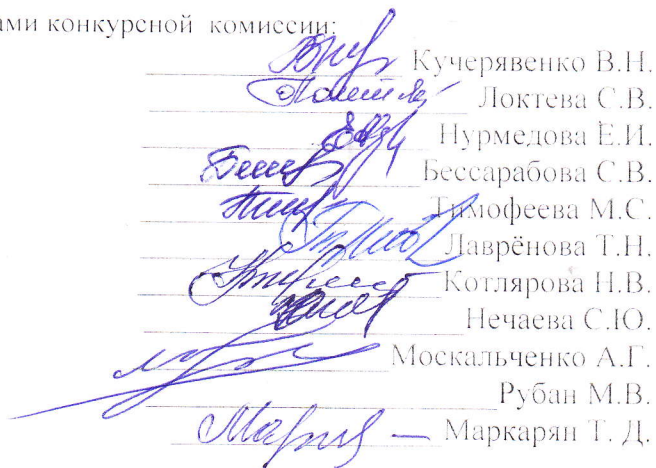 ами конкурсной комиссии:
Кучерявенко В.Н.
Локтева С.В.
Нурмедова Е.И.
Бессарабова С.В.
Тимофеева М.С.
Лаврёнова Т.Н.
Котлярова Н.В.
Нечаева С.Ю.
Москальченко А.Г.
Рубан М.В.
Маркарян Т. Д.